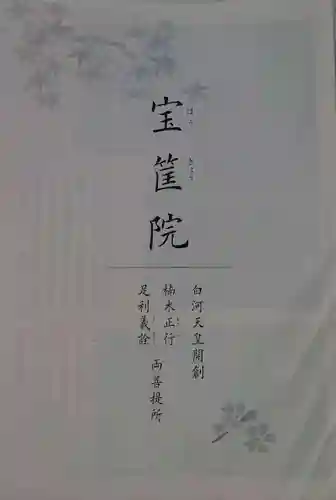 宝筐院
ほうきょう
白河天皇開創
楠木正行
足利義詮
両菩提所